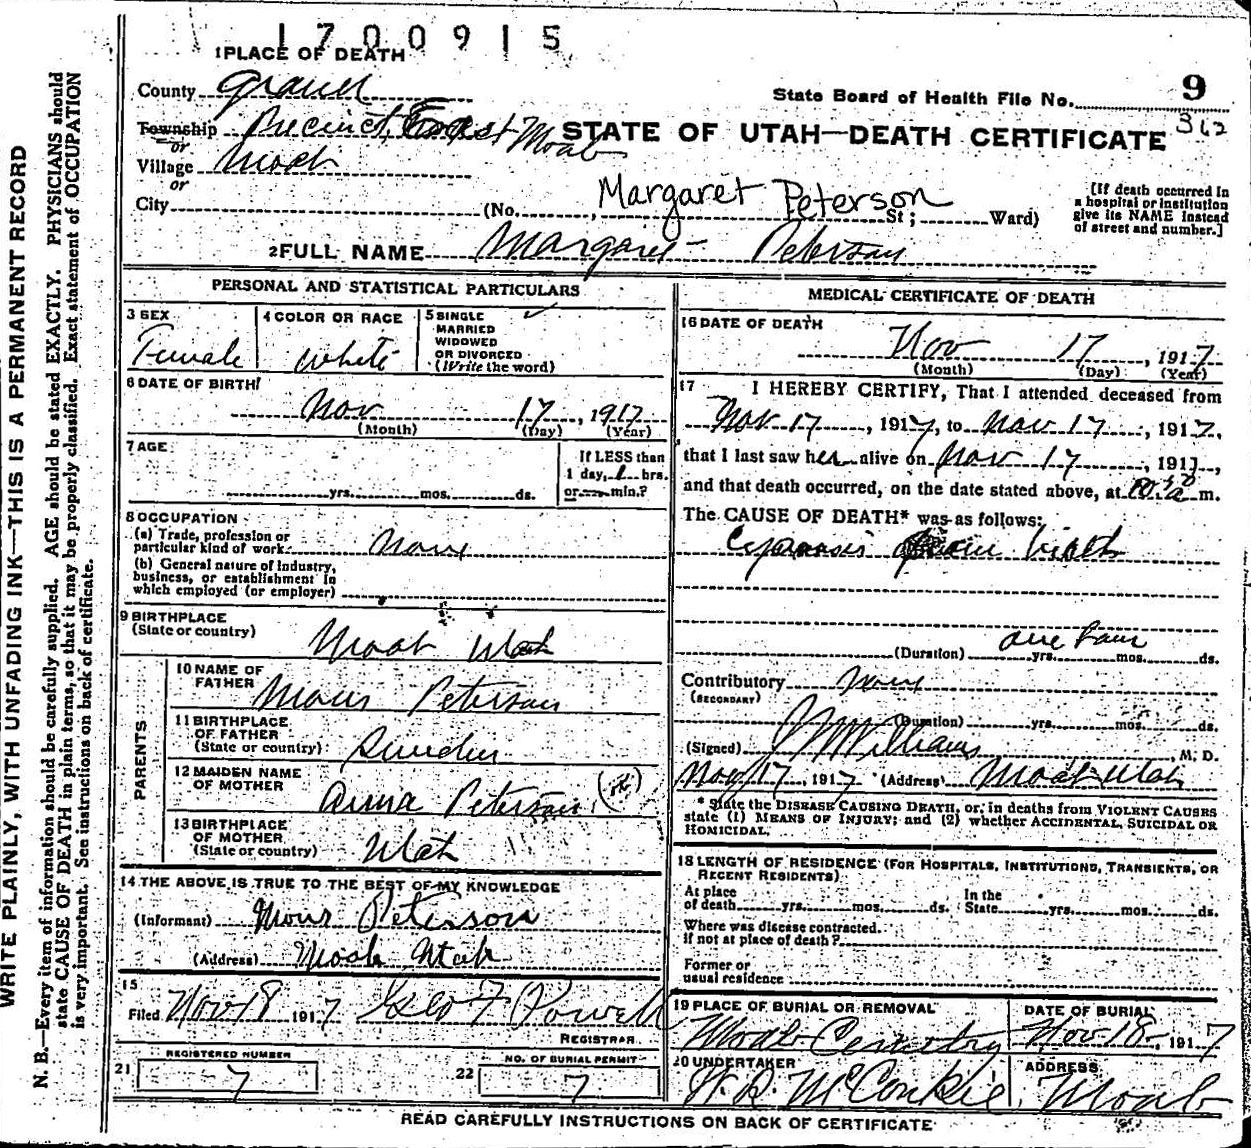 1700915
1 PLACE OF DEATH
County Grand
State Board of Health File No. 9
362
Township Precinct, Moab
or
STATE OF UTAH—DEATH CERTIFICATE
Village Moab
or
City (No. , Margaret Peterson St; Ward)
[If death occurred in
a hospital or institution
give its NAME instead
of street and number.]
2 FULL NAME Margaret Peterson
PERSONAL AND STATISTICAL PARTICULARS
3 SEX
Female
4 COLOR OR RACE
White
5 SINGLE
MARRIED
WIDOWED
OR DIVORCED
(Write the word)
6 DATE OF BIRTH
Nov 17, 1917
(Month) (Day) (Year)
7 AGE
yrs. mos. ds.
If LESS than
1 day, 1 hrs.
or min.?
8 OCCUPATION
(a) Trade, profession or
particular kind of work None
(b) General nature of Industry,
business, or establishment in
which employed (or employer)
9 BIRTHPLACE
(State or country) Moab Utah
PARENTS
10 NAME OF
FATHER Mons Peterson
11 BIRTHPLACE
OF FATHER
(State or country) Sweden
12 MAIDEN NAME
OF MOTHER Anna Peterson (ok)
13 BIRTHPLACE
OF MOTHER
(State or country) Utah
14 THE ABOVE IS TRUE TO THE BEST OF MY KNOWLEDGE
(Informant) Mons Peterson
(Address) Moab Utah
15
Filed Nov 18 1917 Geo F Powell
REGISTRAR
REGISTERED NUMBER
21 7
NO. OF BURIAL PERMIT
22 7
MEDICAL CERTIFICATE OF DEATH
16 DATE OF DEATH
Nov 17, 1917
(Month) (Day) (Year)
17 I HEREBY CERTIFY, That I attended deceased from
Nov 17, 1917, to Nov 17, 1917,
that I last saw her alive on Nov 17, 191 ,
and that death occurred, on the date stated above, at m.
The CAUSE OF DEATH* was as follows:
Cyanosis from birth
one hour
(Duration) yrs. mos. ds.
Contributory None
(SECONDARY)
(Duration) yrs. mos. ds.
(Signed) Williams, M. D.
Nov 17, 1917 (Address) Moab Utah
* State the DISEASE CAUSING DEATH, or, in deaths from VIOLENT CAUSES
state (1) MEANS OF INJURY; and (2) whether ACCIDENTAL, SUICIDAL OR
HOMICIDAL.
18 LENGTH OF RESIDENCE (FOR HOSPITALS, INSTITUTIONS, TRANSIENTS, OR
RECENT RESIDENTS)
At place
of death yrs. mos. ds. In the
State yrs. mos. ds.
Where was disease contracted
if not at place of death?
Former or
usual residence
19 PLACE OF BURIAL OR REMOVAL
Moab Cemetry
DATE OF BURIAL
Nov 18, 1917
20 UNDERTAKER
McConkie
ADDRESS
Moab
READ CAREFULLY INSTRUCTIONS ON BACK OF CERTIFICATE
WRITE PLAINLY, WITH UNFADING INK—THIS IS A PERMANENT RECORD
N. B.—Every item of information should be carefully supplied. AGE should be stated EXACTLY. PHYSICIANS should
state CAUSE OF DEATH in plain terms, so that it may be properly classified. Exact statement of OCCUPATION
is very important. See instructions on back of certificate.